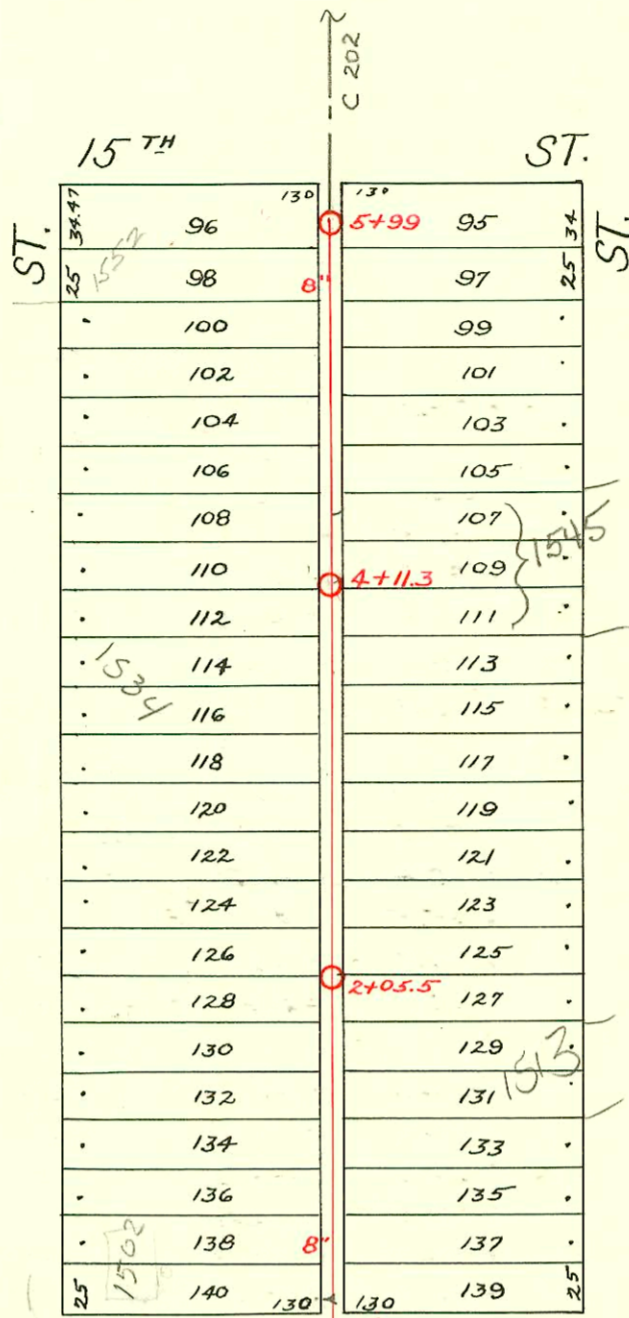 C 202
15 TH ST.
ST. ST.
34.47 96 130 130 5+99 95 34
25 1552 98 8" 97 25
100 99
102 101
104 103
106 105
108 107
110 4+11.3 109 1545
112 111
1534 114 113
116 115
118 117
120 119
122 121
124 123
126 125
128 2+05.5 127
130 129
132 131 1513
134 133
136 135
1502 138 8" 137
25 140 130 130 139 25